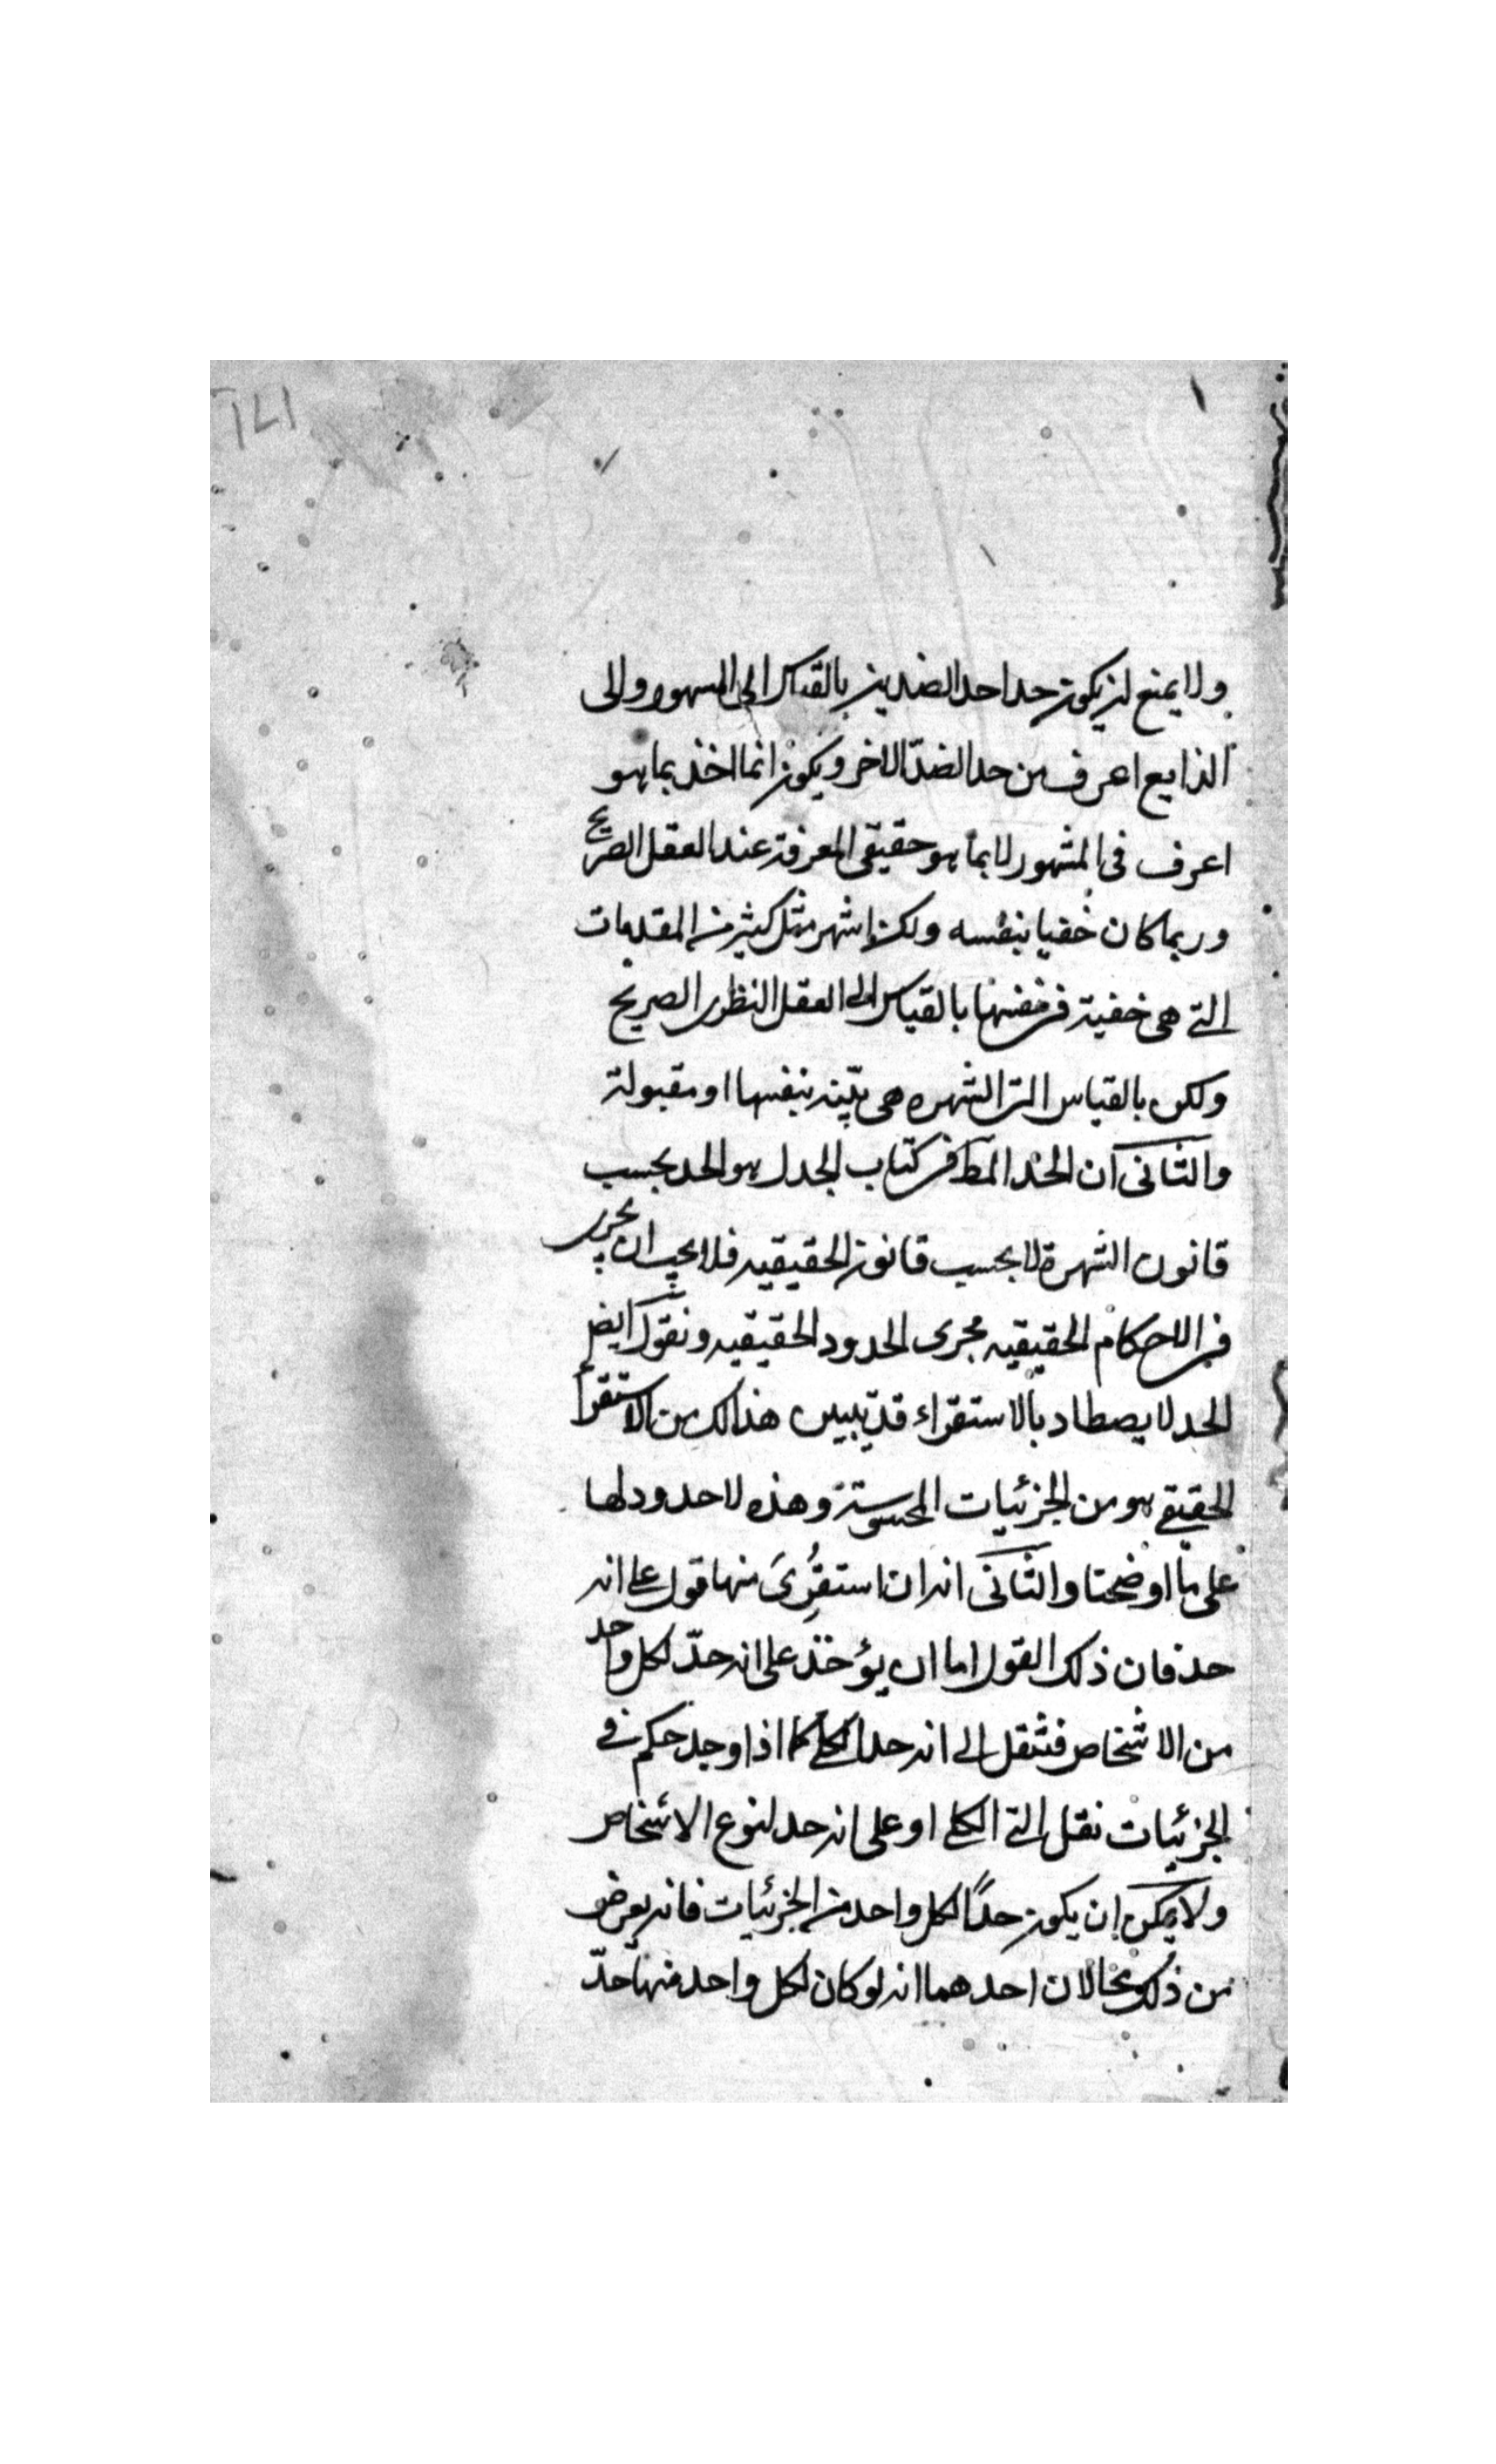 ١٧١
ولا يمنع ان يكون حد احد الضدين بالقياس الى المشهور والى
الذايع اعرف من حد الضدّ الاخر ويكون انما اخذ بما هو
اعرف فى المشهور لا بما هو حقيقى المعرفة عند العقل الصريح
وربما كان خفيا بنفسه ولكن اشهر مثل كثير من المقدمات
التى هى خفية فى نفسها بالقياس الى العقل النظرى الصريح
ولكن بالقياس الى الشهره هى بيّنه بنفسها او مقبولة
والثانى ان الحد المط فى كتاب الجدل هو الحد بحسب
قانون الشهرة لا بحسب قانون الحقيقيه فلا يجب ان يجرى
فى الاحكام الحقيقيه مجرى الحدود الحقيقيه ونقول ايض
الحد لا يصطاد بالاستقراء قد تبيين هذا لك من الاستقرأ
الحقيقى هو من الجزئيات المحسوسة وهذه لا حدود لها
على ما اوضحنا والثانى انه ان استقرئ منها قول على انه
حد فان ذلك القول اما ان يؤخذ على انه حدّ لكل واحد
من الاشخاص فتنقل الى انه حد الكلى كما اذا وجد حكم فى
الجزئيات نقل الى الكلى او على انه حد لنوع الاشخاص
ولا يمكن ان يكون حدًا لكل واحد من الجزئيات فانه يعرض
من ذلك محالان احدهما انه لو كان لكل واحد منها حدّ